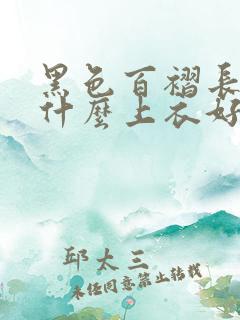 黑色百褶長
什麼上衣好
邱太三
未經同意禁止轉載